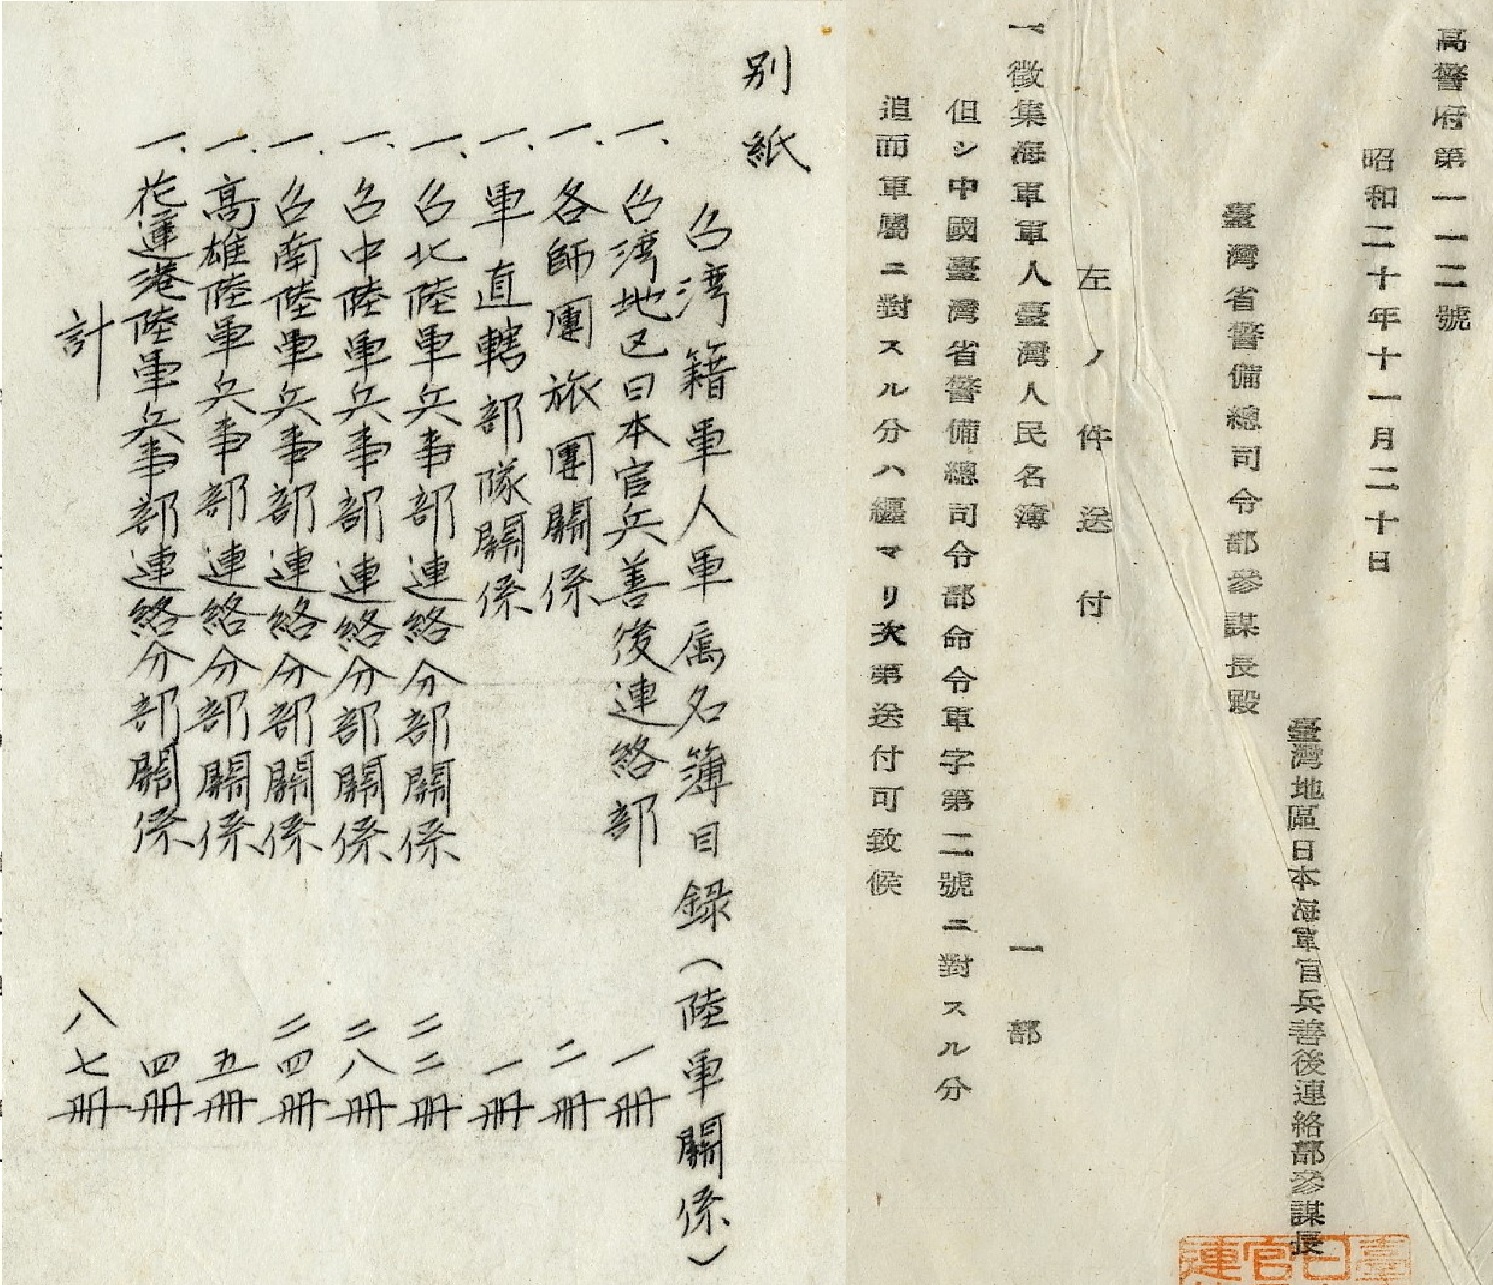 高警府第一一二號
昭和二十年十一月二十日
臺灣地區日本海軍官兵善後連絡部參謀長
臺灣省警備總司令部參謀長殿
左ノ件送付
一徵集海軍軍人臺灣人民名簿 一部
但シ中國臺灣省警備總司令部命令軍字第二號ニ對スル分
追而軍屬ニ對スル分ハ纒マリ次第送付可致候
臺
日
官
連
別紙
台湾籍軍人軍属名簿目録(陸軍關係)
一、台湾地区日本官兵善後連絡部 一册
一、各師團旅團關係 二册
一、軍直轄部隊關係 一册
一、台北陸軍兵事部連絡分部關係 二二册
一、台中陸軍兵事部連絡分部關係 二八册
一、台南陸軍兵事部連絡分部關係 二四册
一、高雄陸軍兵事部連絡分部關係 五册
一、花蓮港陸軍兵事部連絡分部關係 四册
計 八七册